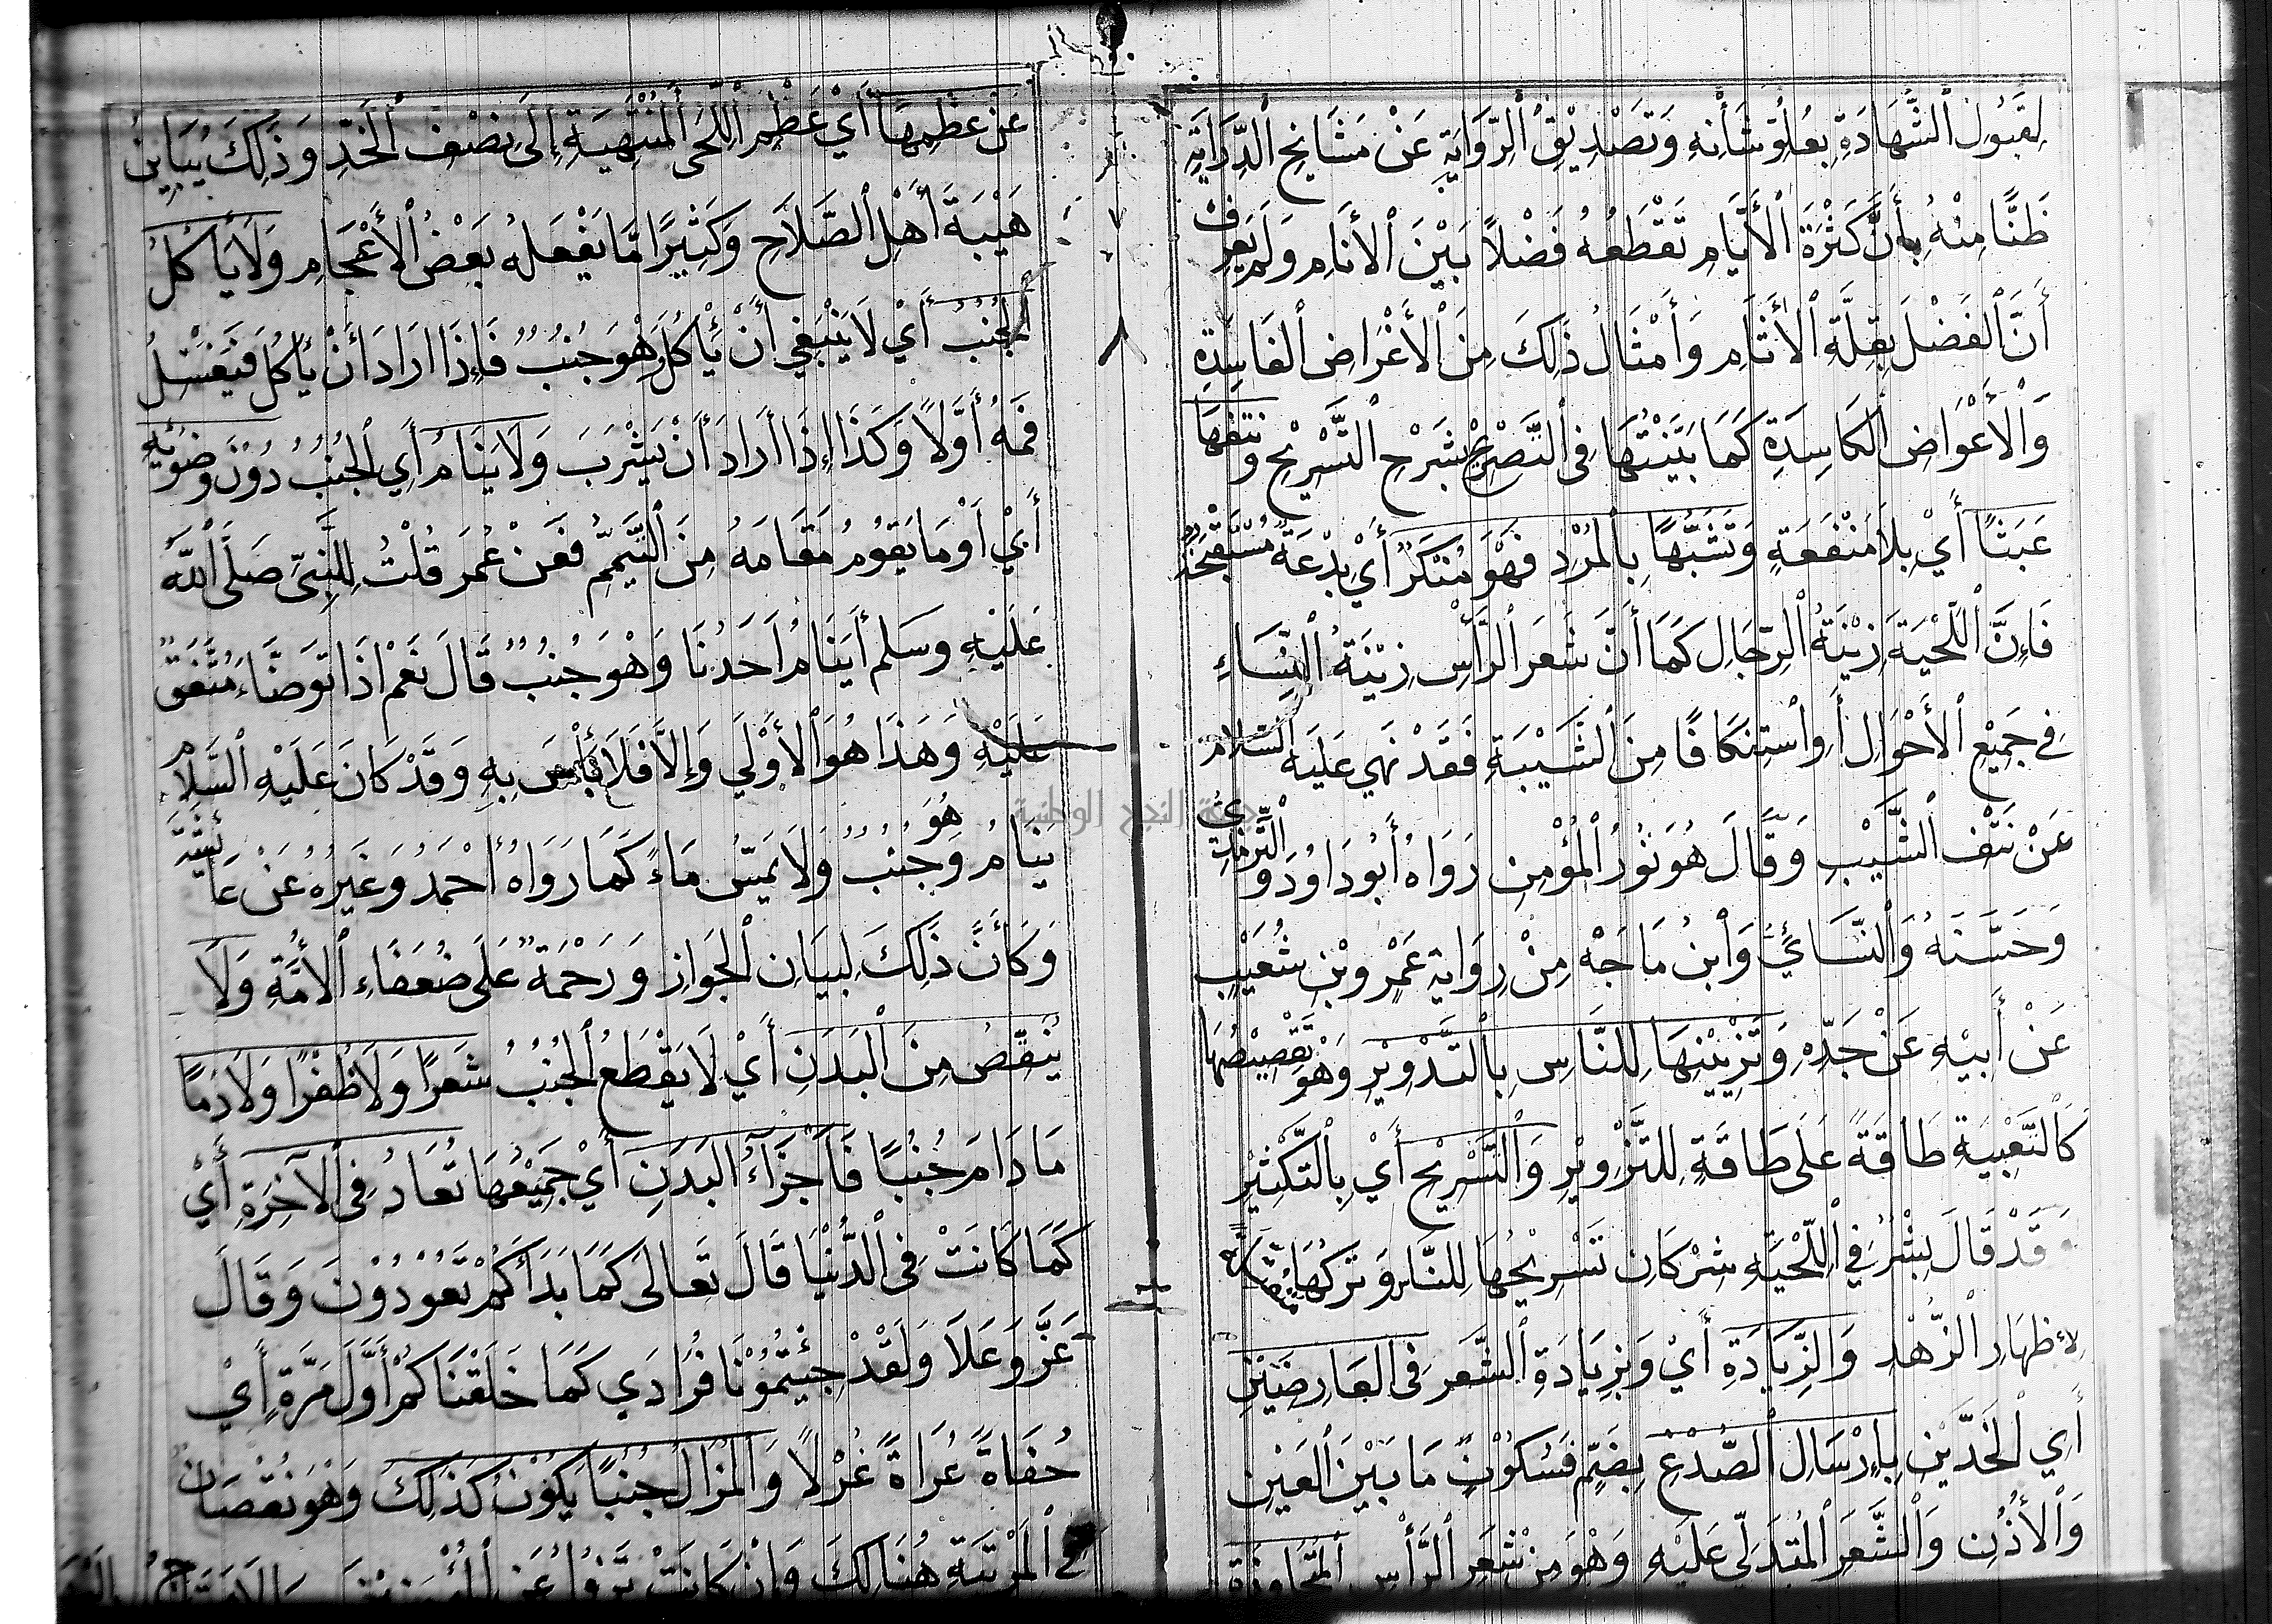 لِقَبُولِ الشَّهَادَةِ بِعُلُوِّ شَأْنِهِ وَتَصْدِيْقِ الرِّوَايَةِ عَنْ مَشَايِخِ الدِّرَايَةِ
ظَنًّا مِنْهُ بِأَنَّ كَثْرَةَ الْأَيَّامِ تَقْطَعُهُ فَضْلاً بَيْنَ الأَنَامِ وَلَمْ يَعْرِفْ
أَنَّ الْفَضْلَ بِقِلَّةِ الْأَثَامِ وَأَمْثَالُ ذَلِكَ مِنَ الْأَغْرَاضِ الْفَاسِدَةِ
وَالْأَعْوَاضِ الْكَاسِدَةِ كَمَا بَيَّنْتُهَا فِي النَّصْرِيْحِ بِشَرْحِ التَّسْرِيْحِ وَنَتْفُهَا
عَبَثًا أَيْ بِلاَ مَنْفَعَةٍ وَتَشَبُّهًا بِالْمُرْدِ فَهْوَ مُنْكَرٌ أَيْ بِدْعَةٌ مُسْتَقْبَحَةٌ
فَإِنَّ اللِّحْيَةَ زِيْنَةُ الرِّجَالِ كَمَا أَنَّ شَعَرَ الرَّأْسِ زِيْنَةُ النِّسَاءِ
فِي جَمِيْعِ الْأَحْوَالِ أَوِ اسْتِنْكَافًا مِنَ الشَّيْبَةِ فَقَدْ نَهَي عَلَيْهِ السَّلَام
عَنْ نَتْفِ الشَّيْبِ وَقَالَ هُوَ نُوْرُ الْمُؤْمِنِ رَوَاهُ أَبُو دَاوُدَ وَالتِّرْمِذِيُّ
وَحَسَّنَهُ وَالنَّسَائِيُّ وَابْنُ مَاجَهْ مِنْ رِوَايَةِ عَمْرِو بْنِ شُعَيْبٍ
عَنْ أَبِيْهِ عَنْ جَدِّهِ وَتَزْيِيْنِهَا لِلنَّاسِ بِالتَّدْوِيْرِ وَهْوَ تَقْصِيْصُهَا
كَالتَّعْبِيَةِ طَاقَةً عَلَى طَاقَةٍ لِلتَّزْوِيْرِ وَالتَّسْرِيْحِ أَيْ بِالتَّكْثِيْرِ
وَقَدْ قَالَ بِشْرٌ فِي اللِّحْيَةِ شِرْكَانِ تَسْرِيْحُهَا لِلنَّاسِ وَتَرْكُهَا
لِإِظْهَارِ الزُّهْدِ وَالزِّيَادَةِ أَيْ وَبِزِيَادَةِ الشَّعَرِ فِي العَارِضَيْنِ
أَيِ الْخَدَّيْنِ بِإِرْسَالِ الصُّدْغِ بِضَمٍّ فَسُكُوْنٍ مَا بَيْنَ الْعَيْنِ
وَالْأُذُنِ وَالشَّعَرِ الْمُتَدَلِّي عَلَيْهِ وَهْوَ مِنْ شَعَرِ الرَّأْسِ الْمُتَجَاوِزَةِ
عَنْ عَظْمِهَا أَيْ عَظْمِ اللِّحَى الْمُنْتَهِيَةِ إِلَى نِصْفِ الْخَدِّ وَذَلِكَ يُبَايِنُ
هَيْبَةَ أَهْلِ الصَّلاَحِ وَكَثِيْرًا مَّا يَفْعَلُهُ بَعْضُ الْأَعْجَامِ وَلَا يَأْكُلُ
الْجُنُبُ أَيْ لَا يَنْبَغِي أَنْ يَأْكُلَ وَهْوَ جُنُبٌ فَإِذَا ارَادَ أَنْ يَأْكُلَ فَيَغْسِلُ
فَمَهُ أَوَّلاً وَكَذَا إِذَا أَرَادَ أَنْ يَشْرَبَ وَلَا يَنَامُ أَيِ الْجُنُبُ دُوْنَ وُضُوْئِهِ
أَيْ أَوْ مَا يَقُوْمُ مَقَامَهُ مِنَ التَّيَمُّمِ فَعَنْ عُمَرَ قُلْتُ لِلنَّبِيِّ صَلَّى اللّٰهُ
عَلَيْهِ وَسَلَم أَيَنَامُ أَحَدُنَا وَهْوَ جُنُبٌ قَالَ نَعَمْ إِذَا تَوَضَّاءَ مُتَّفَقٌ
عَلَيْهِ وَهَذَا هُوَ الْأَوْلَي وَإِلاَّ فَلَا بَأْسَ بِهِ وَقَدْ كَانَ عَلَيْهِ السَّلَامُ
يَنَامُ وَهُوَ جُنُبٌ وَلَا يَمَسُّ مَاءً كَمَا رَوَاهُ أَحْمَدُ وَغَيْرُهُ عَنْ عَائِشَةَ
وَكَأَنَّ ذَلِكَ لِبَيَانِ الْجَوَازِ وَرَحْمَةً عَلَى ضُعَفَاءِ الْأُمَّةِ وَلَا
يُنَقِّصُ مِنَ الْبَدَنِ أَيْ لَا يَقْطَعُ الْجُنُبُ شَعَرًا وَلَا ظُفْرًا وَلَا دَمًا
مَا دَامَ جُنُبًا فَأَجْزَاءُ الْبَدَنِ أَيْ جَمِيْعُهَا تُعَادُ فِي الْآخِرَةِ أَيْ
كَمَا كَانَتْ فِي الدُّنْيَا قَالَ تَعَالَى كَمَا بَدَأَكُمْ تَعُوْدُوْنَ وَقَالَ
عَزَّ وَعَلَا وَلَقَدْ جِئْتُمُوْنَا فُرَادَي كَمَا خَلَقْنَاكُمْ أَوَّلَ مَرَّةٍ أَيْ
حُفَاةً عُرَاةً غُرْلاً وَالْمُزَالُ جُنُبًا يَكُوْنُ كَذَلِكَ وَهْوَ نُقْصَانٌ
فِي الْمَرْتَبَةِ هُنَالِكَ وَإِنْ كَانَتْ
جامعة النجاح الوطنية